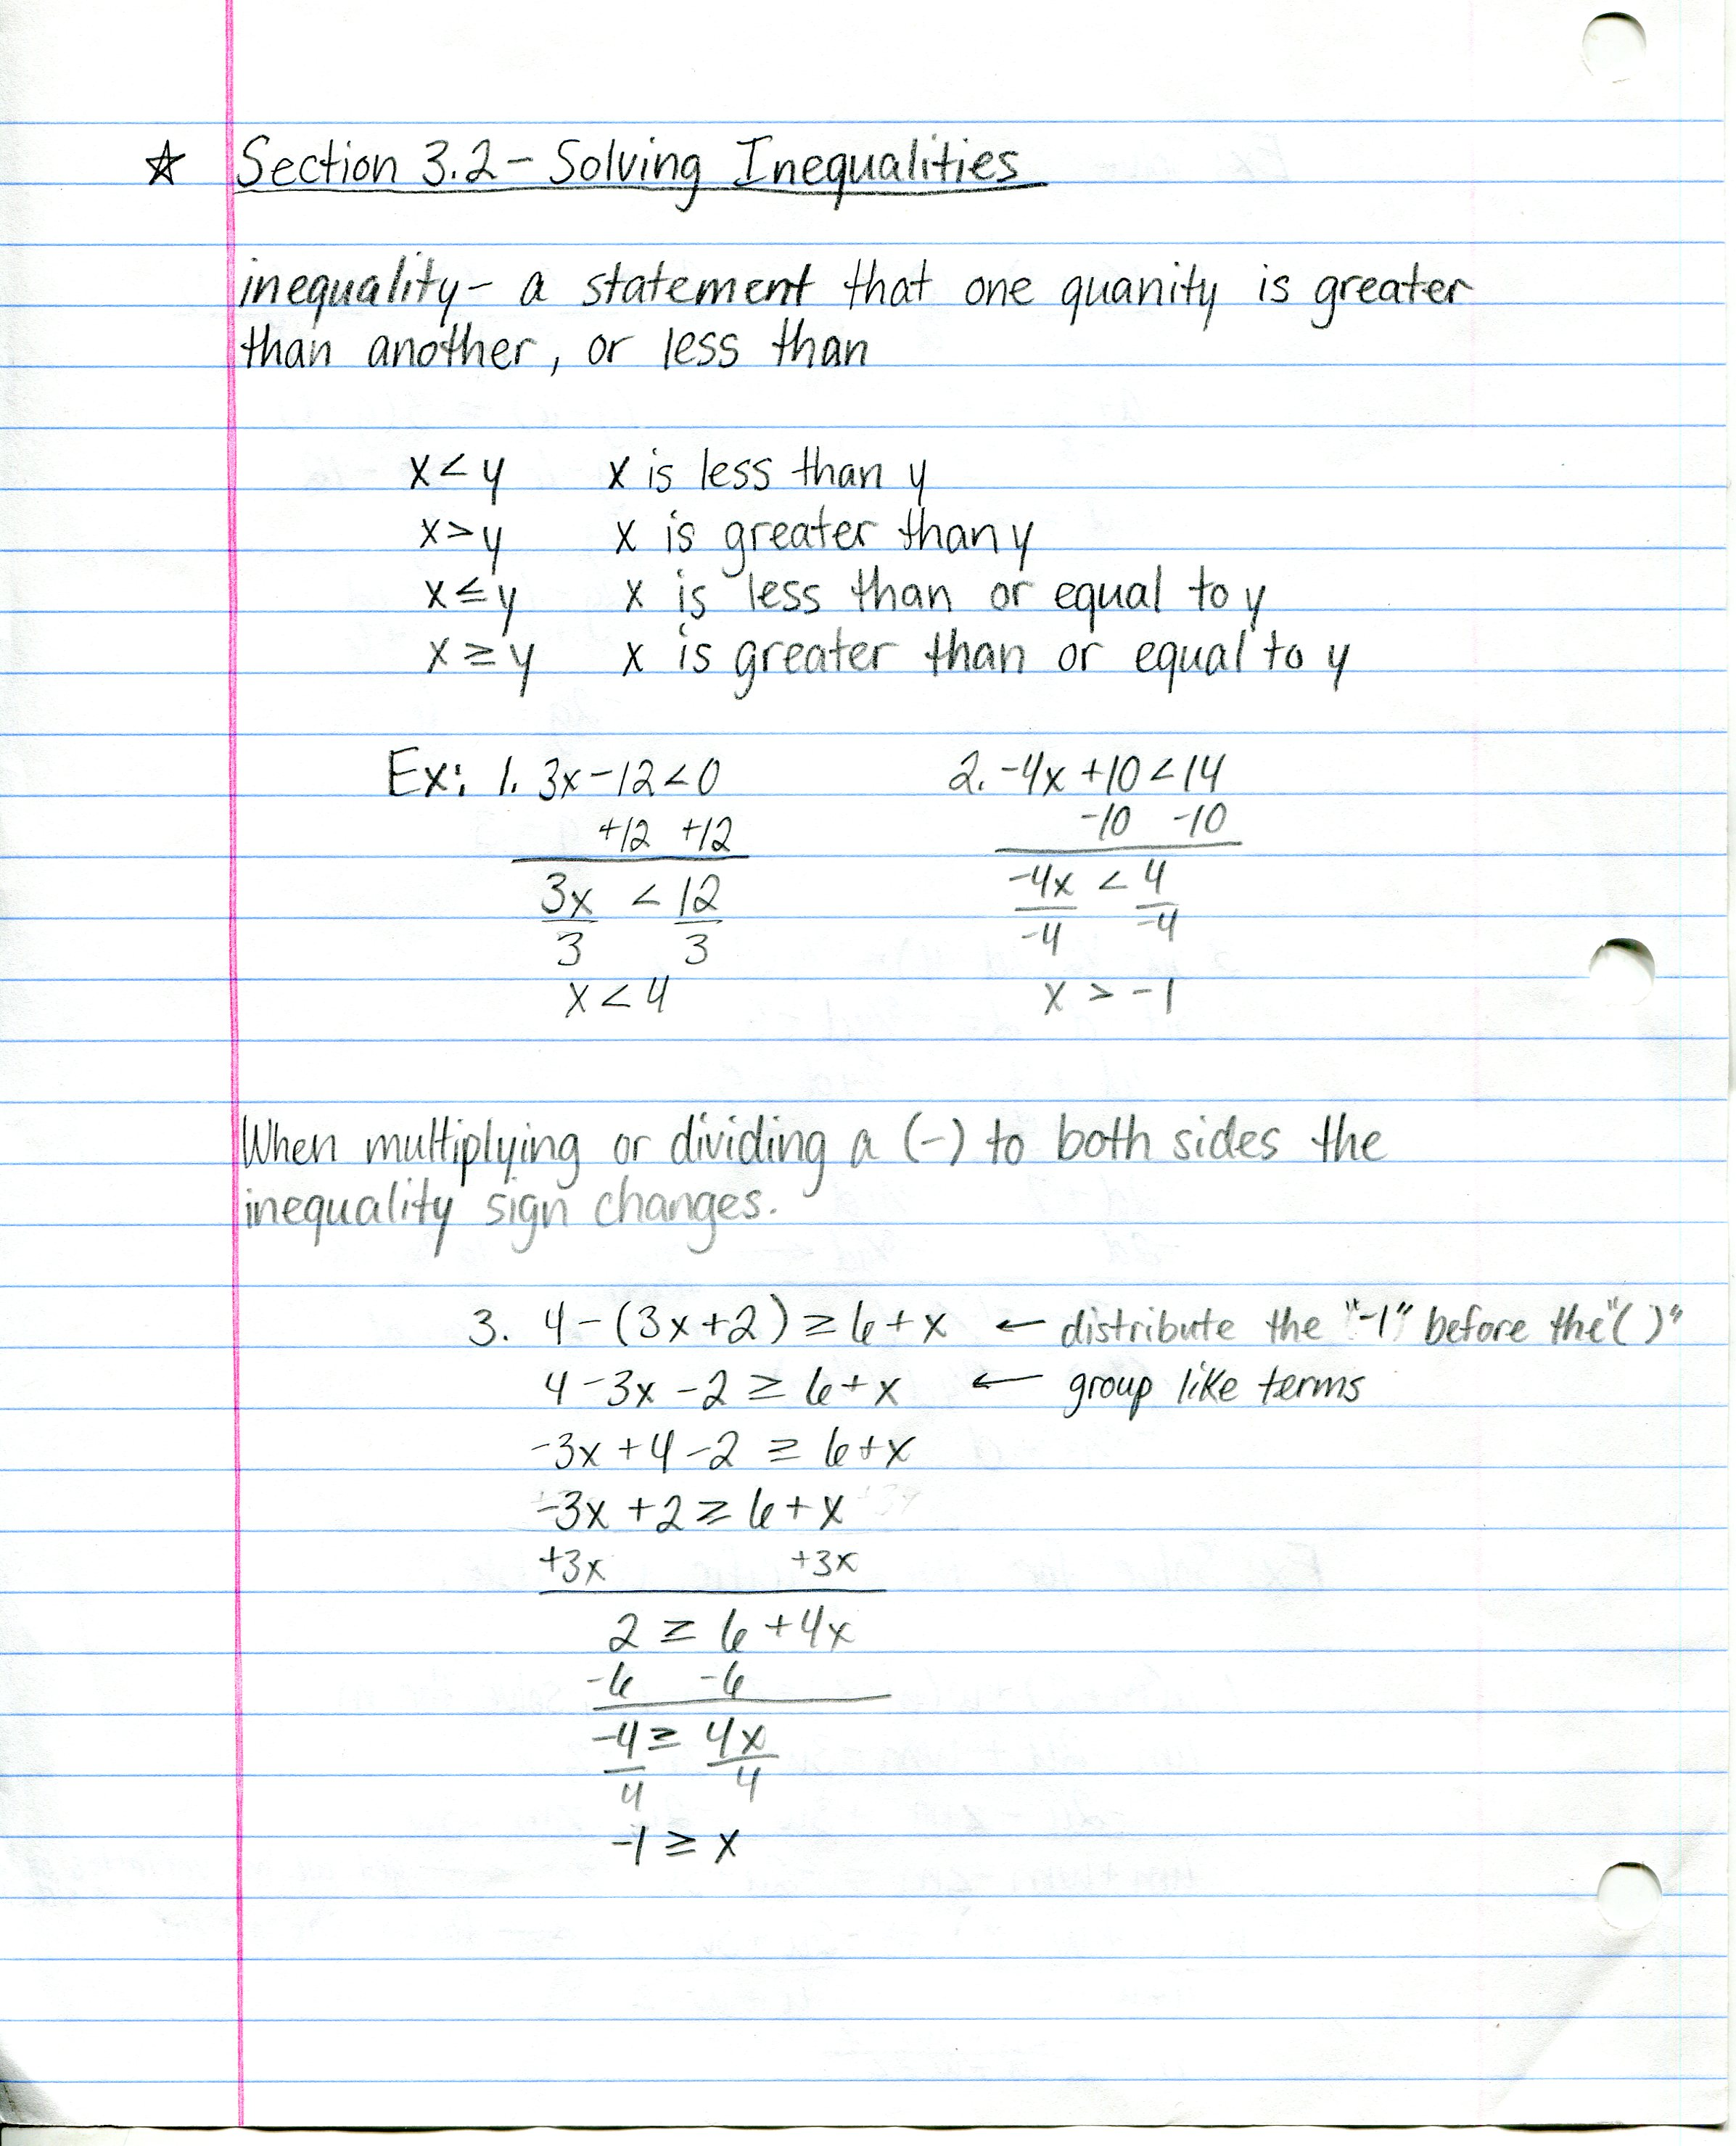 ☆ Section 3.2 - Solving Inequalities
inequality - a statement that one quanity is greater
than another, or less than
x < y x is less than y
x > y x is greater than y
x ≤ y x is less than or equal to y
x ≥ y x is greater than or equal to y
Ex: 1. 3x - 12 < 0 2. -4x + 10 < 14
+12 +12 -10 -10
3x < 12 -4x < 4
3 3 -4 -4
x < 4 x > -1
When multiplying or dividing a (-) to both sides the
inequality sign changes.
3. 4 - (3x + 2) ≥ 6 + x ← distribute the "-1" before the "( )"
4 - 3x - 2 ≥ 6 + x ← group like terms
-3x + 4 - 2 ≥ 6 + x
-3x + 2 ≥ 6 + x
+3x +3x
2 ≥ 6 + 4x
-6 -6
-4 ≥ 4x
4 4
-1 ≥ x